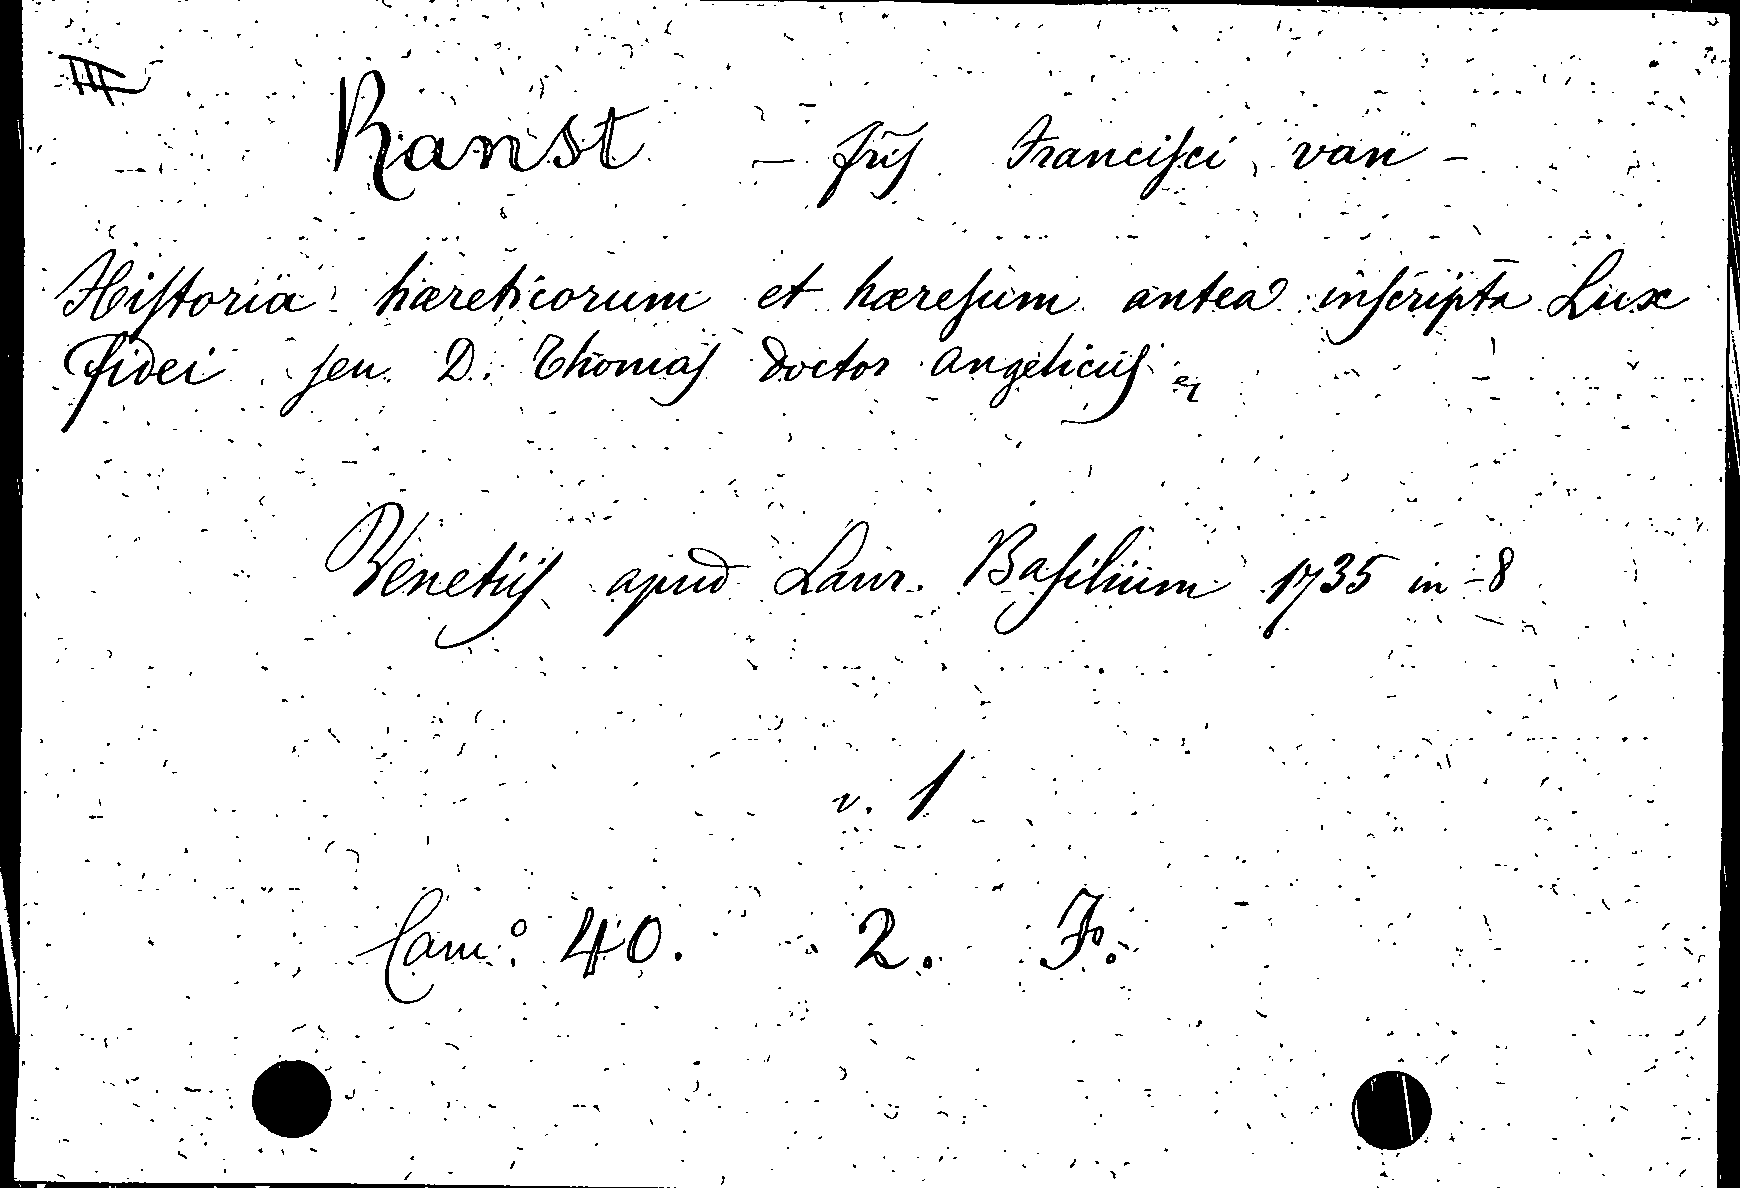 III
Ranst – frĩs Francisci van –
Historia hæreticorum et hæresum antea inscripta Lux
fidei seu D. Thomas doctor angelicus &
Venetiis apud Laur. Basilium 1735 in-8
v. 1
Cam:° 40. 2. F.